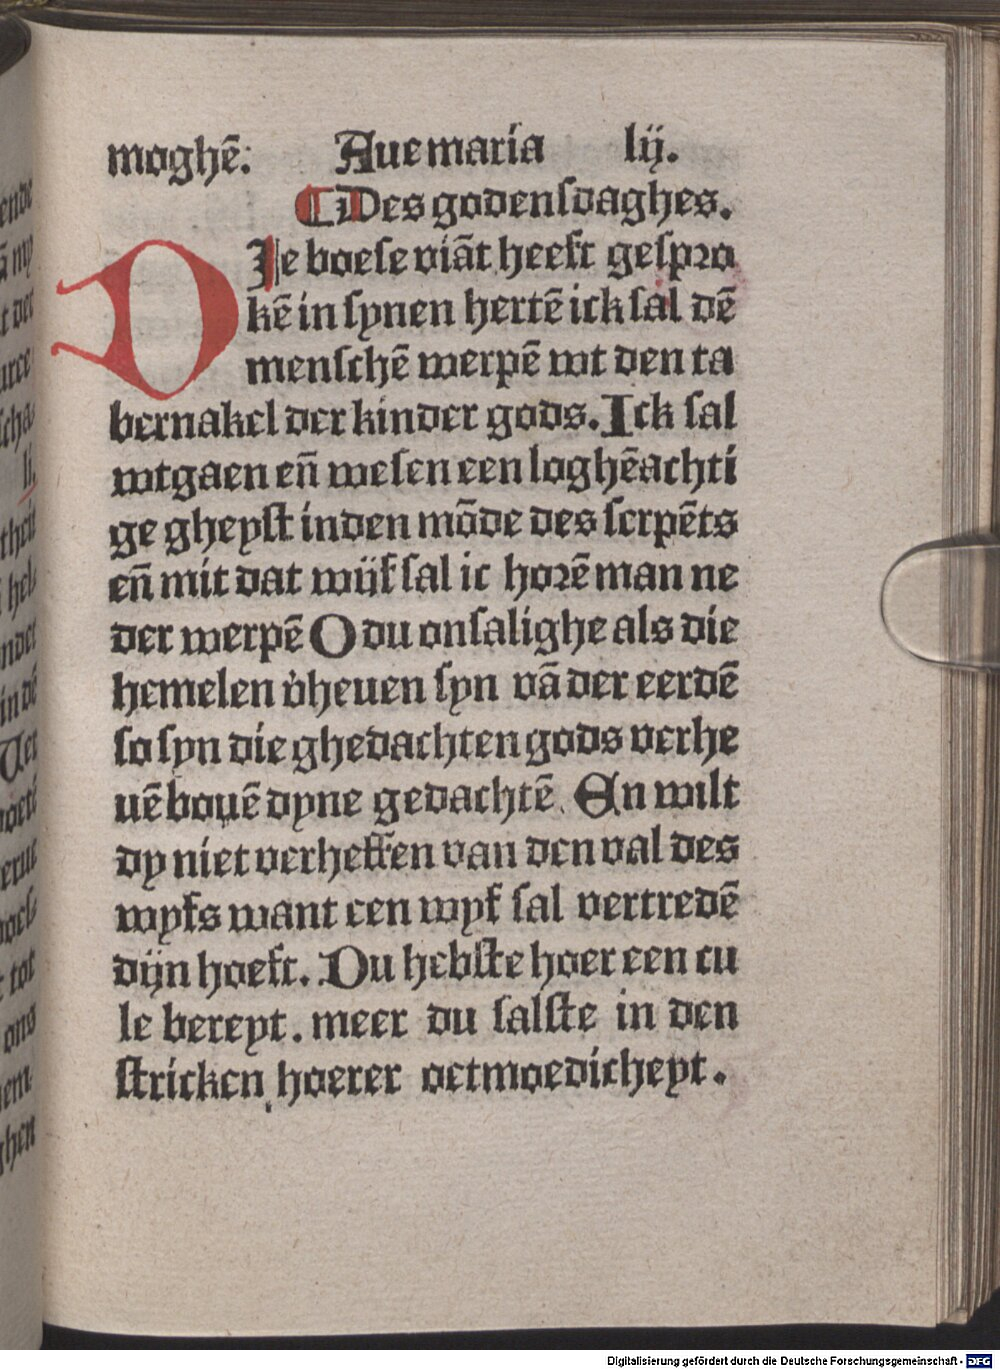 moghē. Aue maria lij.
¶ Des godensdaghes.
DIe boese viāt heeft gespro
kē in synen hertē ick sal dē
menschē werpē wt den ta
bernakel der kinder gods. Ick sal
wtgaen eñ wesen een loghēachti
ge gheyst inden mōde des serpēts
eñ mit dat wijf sal ic horē man ne
der werpē O du onsalighe als die
hemelen v̄heuen syn vā der eerdē
so syn die ghedachten gods verhe
uē bouē dyne gedachtē. En wilt
dy niet verheffen van den val des
wyfs want een wyf sal vertredē
dijn hoeft. Du hebste hoer een cu
le bereyt. meer du salste in den
stricken hoerer oetmoedicheyt.
Digitalisierung gefördert durch die Deutsche Forschungsgemeinschaft - DFG